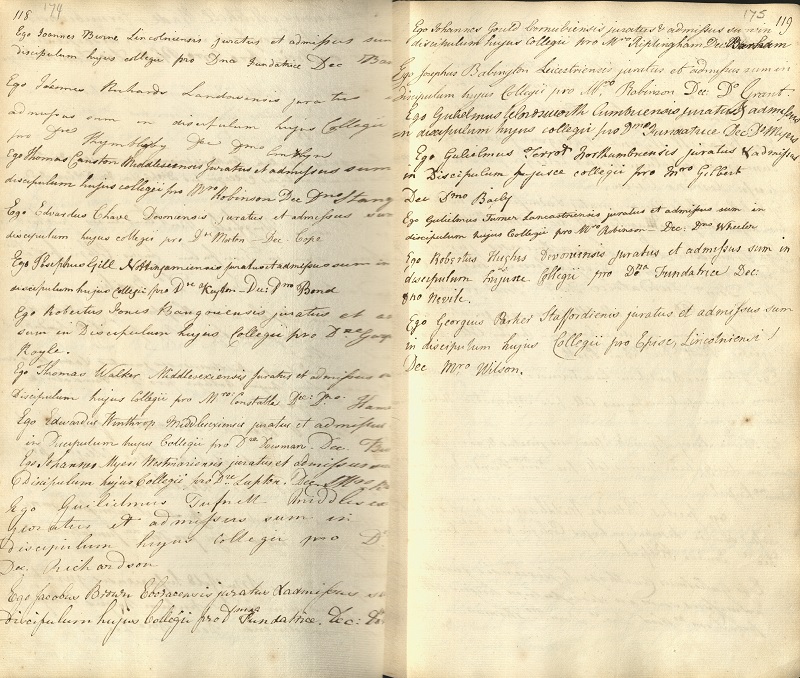 118 174
Ego Joannes Burne Lincolniensis juratus et admissus sum
discipulum hujus collegii pro Dna Fundatrice Dec
Ego Richards Landavensis juratus
admissus sum in discipulum hujus Collegii
pro Dec Dmo
Ego Thomas Causton Middlesexiensis Juratus et admissus sum
discipulum hujus collegii pro Mro Robinson Dec Dno
Ego Edvardus Chave Devoniensis juratus et admissus
discipulum hujus collegii pro Dec Cope
Ego Josephus Gill Nottingamiensis juratus et admissus sum in
discipulum hujus collegii pro Dre Keyton Dec: Dno Bond
Ego Robertus Jones Bangorensis juratus et
sum in Discipulum hujus Collegii pro
Royle.
Ego Thomas Walker Middlesexiensis Juratus et admissus
Discipulum hujus Collegii pro Mro Constable Dec: Dno.
Ego Edwardus Winthrop Middlesexiensis juratus et admissus
in Discipulum hujus Collegii pro Newman. Dec.
Ego Johannes Myers Westmariensis juratus et admissus
Discipulum hujus Collegii pro Dre Lupton. Dec.
Ego Guilielmus Tufnell Middlesex
juratus et admissus sum in
discipulum hujus Collegii pro D
Dec. Richardson
Ego Jacobus Brown Eboracensis juratus & admissus
Discipulum hujus Collegii pro Dmna Fundatrice. Dec:
175 119
Ego Johannes Gould Cornubiensis juratus & admissus sum in
discipulum hujus Collegii pro Mro Riplingham Dec Banham
Ego Josephus Babington Leicestriensis juratus et admissus sum in
discipulum hujus Collegii pro Mro Robinson Dec: Do Grant
Ego Gulielmus Wordsworth Cumbriensis juratus & admissus
in discipulum hujus collegii pro Dmna Fundatrice Dec Do Meyers
Ego Gulielmus Terrot Northumbriensis juratus & admissus
in Discipulum hujusce collegii pro Mro Gilbert
Dec Dmo Baily
Ego Gulielmus Turner Lancastriensis juratus et admissus sum in
discipulum hujus Collegii pro Mro Robinson Dec: Dno Wheeler
Ego Robertus Hughs Devoniensis juratus et admissus sum in
discipulum hujusce Collegii pro Dona Fundatrice Dec:
Dno Nevile.
Ego Georgius Parker Staffordiensis juratus et admissus sum
in discipulum hujus Collegii pro Episc, Lincolniensi!
Dec Mro Wilson.